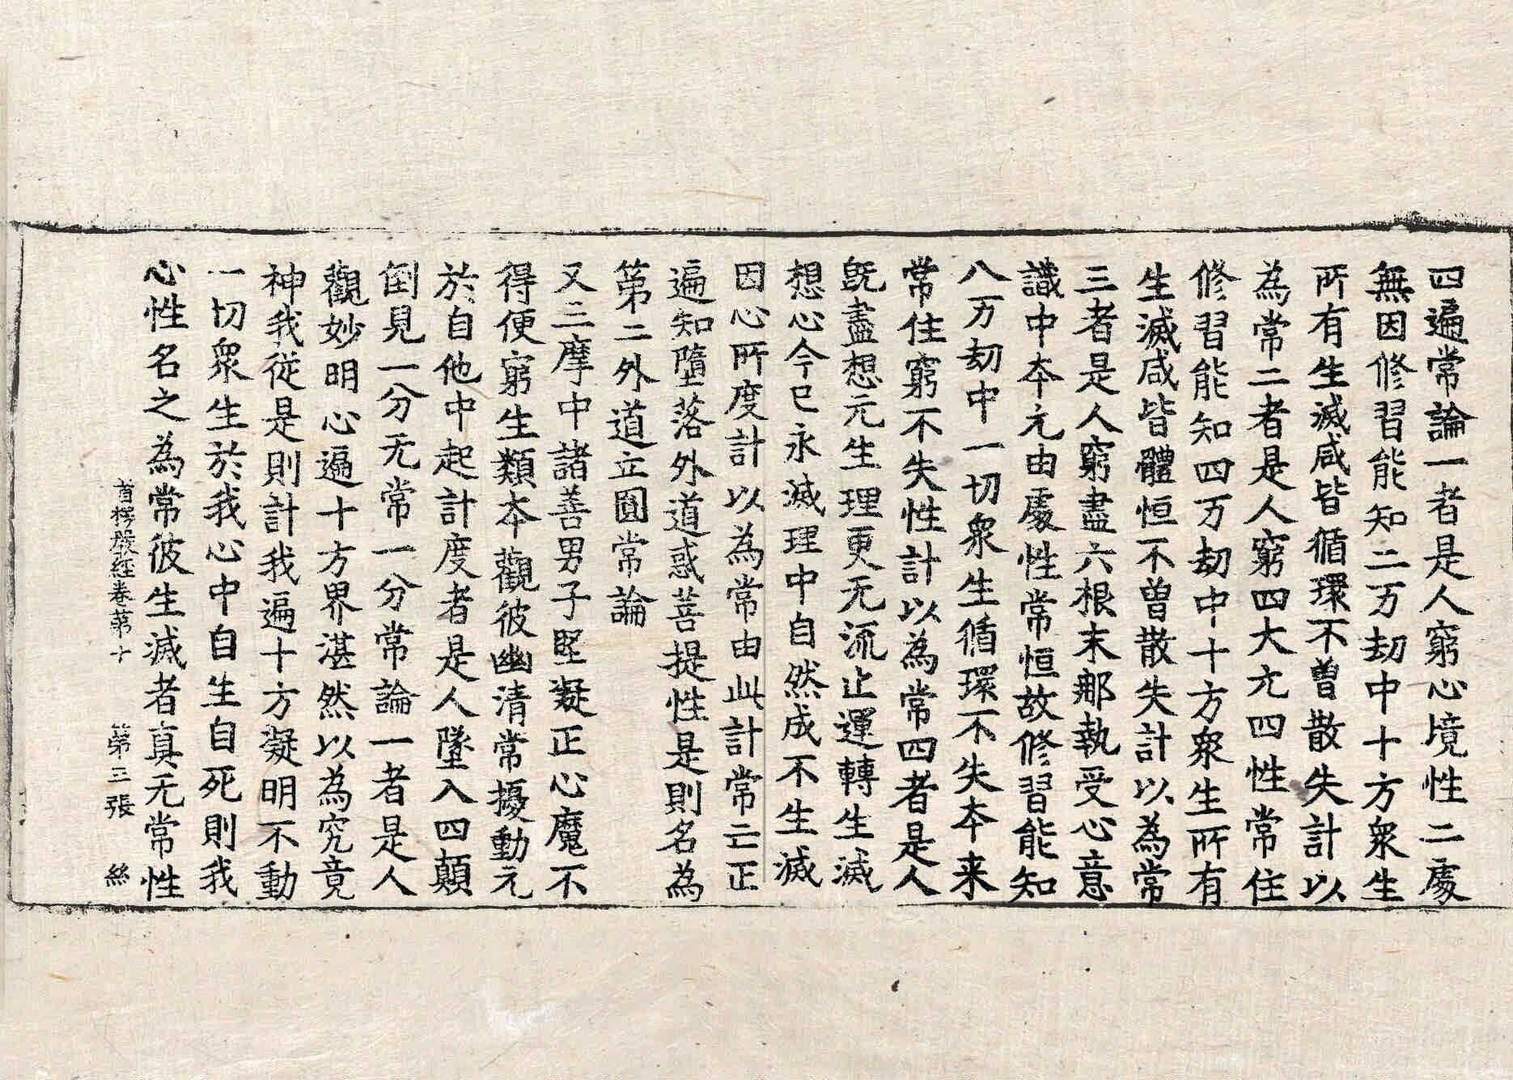 四遍常論一者是人窮心境性二處
無因修習能知二万劫中十方衆生
所有生滅咸皆循環不曾散失計以
為常二者是人窮四大元四性常住
修習能知四万劫中十方衆生所有
生滅咸皆體恒不曾散失計以為常
三者是人窮盡六根末那執受心意
識中夲元由處性常恒故修習能知
八万劫中一切衆生循環不失夲来
常住窮不失性計以為常四者是人
旣盡想元生理更无流止運轉生滅
想心今已永滅理中自然成不生滅
因心所度計以為常由此計常亡正
遍知墮落外道惑菩提性是則名為
第二外道立圓常論
又三摩中諸善男子堅凝正心魔不
得便窮生類夲觀彼幽清常擾動元
於自他中起計度者是人墜入四顛
倒見一分无常一分常論一者是人
觀妙明心遍十方界湛然以為究竟
神我從是則計我遍十方凝明不動
一切衆生於我心中自生自死則我
心性名之為常彼生滅者真无常性
首楞嚴經卷第十　第三張　絲